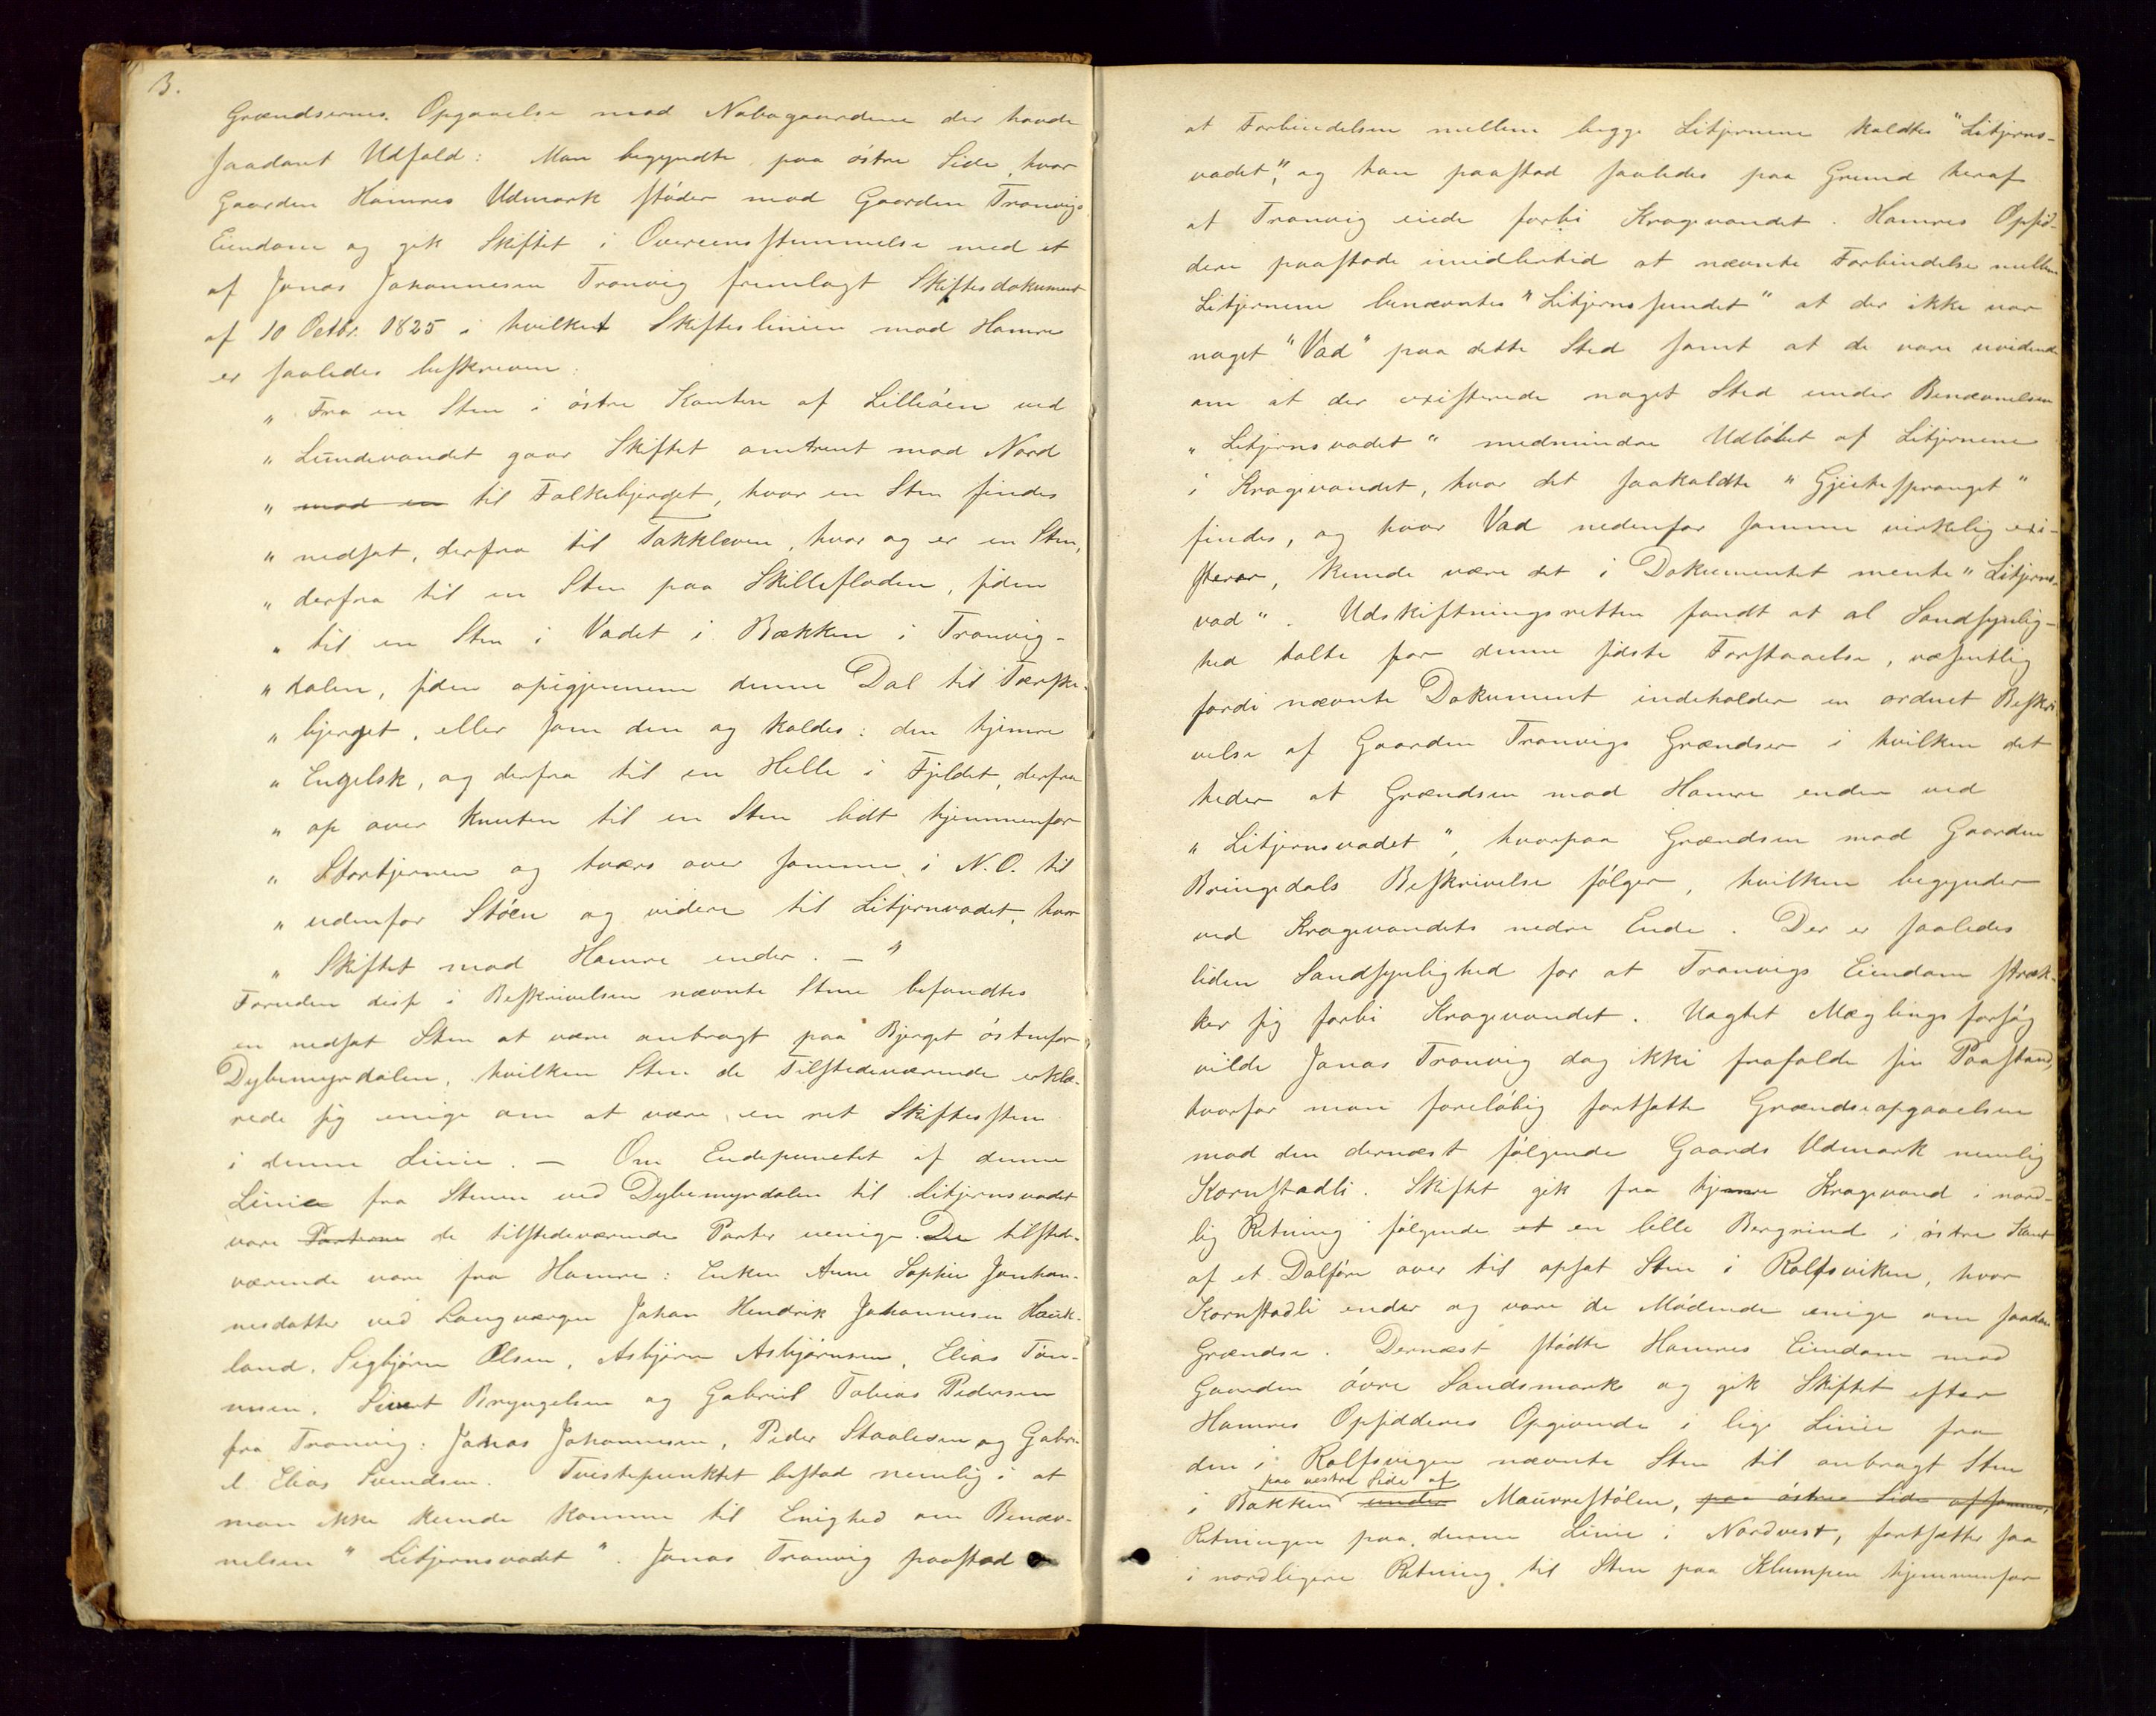 3.
Grændsernes Opgaaelse mod Nabogaardene der havde
saadant Udfald: Man begyndte paa östre Side, hvor
Gaarden Hamres Udmark stöder mod Gaarden Tranvigs
Eiendom og gik Skiftet i Overeensstemmelse med et
af Jonas Johannesen Tranvig fremlagt Skiftesdokument
af 10 Octbr. 1825 i hvilket Skifteslinien mod Hamre
er saaledes beskreven:
" Fra en Sten i östre Kanten af Lilleöen ved
" Lundevandet gaar Skiftet omtrent mod Nord
" mod en til Falkebjerget, hvor en Sten findes
" nedsat, derfra til Takkleven, hvor og er en Sten,
" derfra til en Sten paa Skillefloden, siden
" til en Sten i Vadet i Bækken i Tranvig-
" dalen, siden opigjennem denne Dal til Tærske-
" bjerget, eller som den og kaldes: den hjemre
" Engelsk, og derfra til en Helle i Fjeldet, derfra
" op over Knuten til en Sten lidt hjemmenfor
" Stortjernen og tværs over samme i N.O. til
" udenfor Stöen og videre til Litjernvadet, hvor
" Skiftet mod Hamre ender. — "
Foruden diss i Beskrivelsen nævnte Stene befandtes
en nedsat Sten at være anbragt paa Bjerget östenfor
Dybemyrdalen, hvilken Sten de Tilstedeværende erklæ-
rede sig enige om at være en ret Skiftessten
i denne Linie. — Om Endepunctet af denne
Linie fra Stenen ved Dybemyrdalen til Litjernsvadet
vare Parterne de tilstedeværende Parter uenige. De tilstede-
værende vare fra Hamre: Enken Anne Sophie Jonhan-
nesdatter ved Laugværge Johan Hendrik Johannesen Hauk-
land, Sigbjörn Olsen, Asbjörn Asbjörnsen, Elias Tön-
nesen, Sivert Bryngelsen og Gabriel Tobias Pedersen
fra Tranvig: Jonas Johannesen, Peder Staalesen og Gabri-
el Elias Svendsen. Tvistepunktet bestod nemlig i at
man ikke kunde komme til Enighed om Benæv-
nelsen " Litjernsvadet ". Jonas Tranvig paastod
at Forbindelsen mellem begge Litjernene kaldtes "Litjerns-
vadet", og han paastod saaledes paa Grund heraf
at Tranvig eiede forbi Kragevandet. Hamres Opsid-
dere paastode imidlertid at nævnte Forbindelse mellem
Litjernene benævntes "Litjernssundet" at der ikke var
noget "Vad" paa dette Sted samt at de vare uvidende
om at der existerede noget Sted under Benævnelsen
" Litjernsvadet " medmindre Udlöbet af Litjernene
i Kragevandet, hvor det saakaldte " Gjeitespranget "
findes, og hvor Vad nedenfor samme virkelig exi-
sterer, kunde være det i Dokumentet mente " Litjerns-
vad ". Udskiftningsretten fandt at al Sandsynlig-
hed talte for denne sidste Forstaaelse, væsentlig
fordi nævnte Dokument indeholder en ordnet Beskri-
velse af Gaarden Tranvigs Grændser i hvilken det
heder at Grændsen mod Hamre ender ved
" Litjernsvadet ", hvorpaa Grændsen mod Gaarden
Bringedals Beskrivelse fölger, hvilken begynder
ved Kragevandets nedre Ende. Der er saaledes
liden Sandsynlighed for at Tranvigs Eiendom stræk-
ker sig forbi Kragevandet. Uagtet Mæglingsforsög
vilde Jonas Tranvig dog ikke frafalde sin Paastand,
hvorfor man forelöbig fortsatte Grændseopgaaelsen
mod den dernæst fölgende Gaards Udmark nemlig
Kornstadli. Skiftet gik fra hjemre Kragevand i nord-
lig Retning fölgende et en lille Bergrind i östre Kant
af et Dalföre over til opsat Sten i Rolfsviken, hvor
Kornstadli ender og vare de Mödende enige om saadan
Grændse. Dernæst stödte Hamres Eiendom mod
Gaarden övre Sandsmark og gik Skiftet efter
Hamres Opsidderes Opgivende i lige Linie fra
den i Rolfsvigen nævnte Sten til anbragt Sten
paa vestre Side af
i Bakken under Maurrestölen, paa östre Side af samme,
Retningen paa denne Linie i Nordvest, fortsætter saa
i nordligere Retning til Sten paa Klumpen hjemmenfor